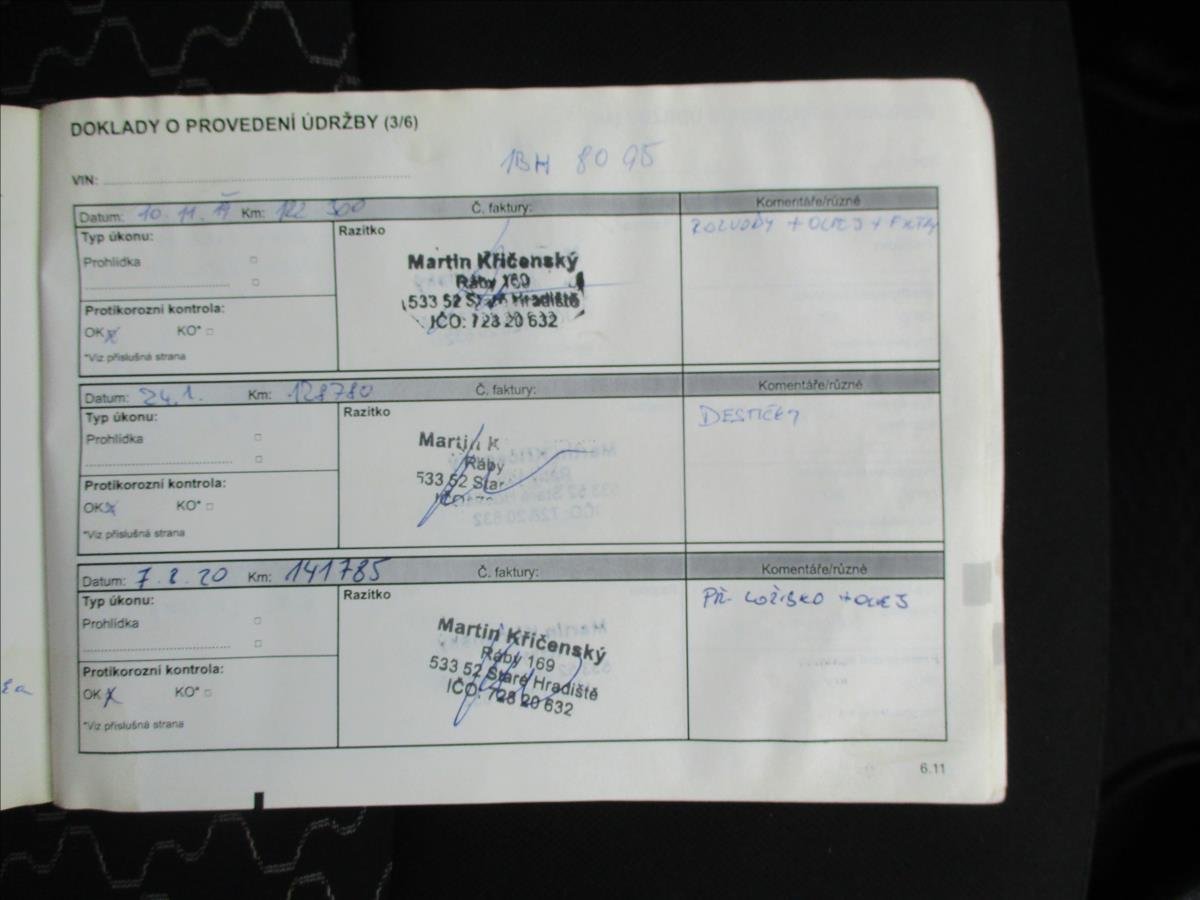 DOKLADY O PROVEDENÍ ÚDRŽBY (3/6)
1BH 80 95
VIN:
Datum: 10.11. Km: 122 300 Č. faktury: Komentáře/různé
Typ úkonu: Razítko ROZVODY + OLEJ + FILTRY
Prohlídka
Martin Křičenský
Ráby 169
533 52 Staré Hradiště
IČO: 728 20 632
Protikorozní kontrola:
OK x KO*
*Viz příslušná strana
Datum: 24.1. Km: 128780 Č. faktury: Komentáře/různé
Typ úkonu: Razítko DESTIČKY
Prohlídka
Martin K
Ráby
533 52 Star
IČO: 72
Protikorozní kontrola:
OK x KO*
*Viz příslušná strana
Datum: 7.2.20 Km: 141785 Č. faktury: Komentáře/různé
Typ úkonu: Razítko PŘ. LOŽISKO + OLEJ
Prohlídka
Martin Křičenský
Ráby 169
533 52 Staré Hradiště
IČO: 728 20 632
Protikorozní kontrola:
OK x KO*
*Viz příslušná strana
6.11